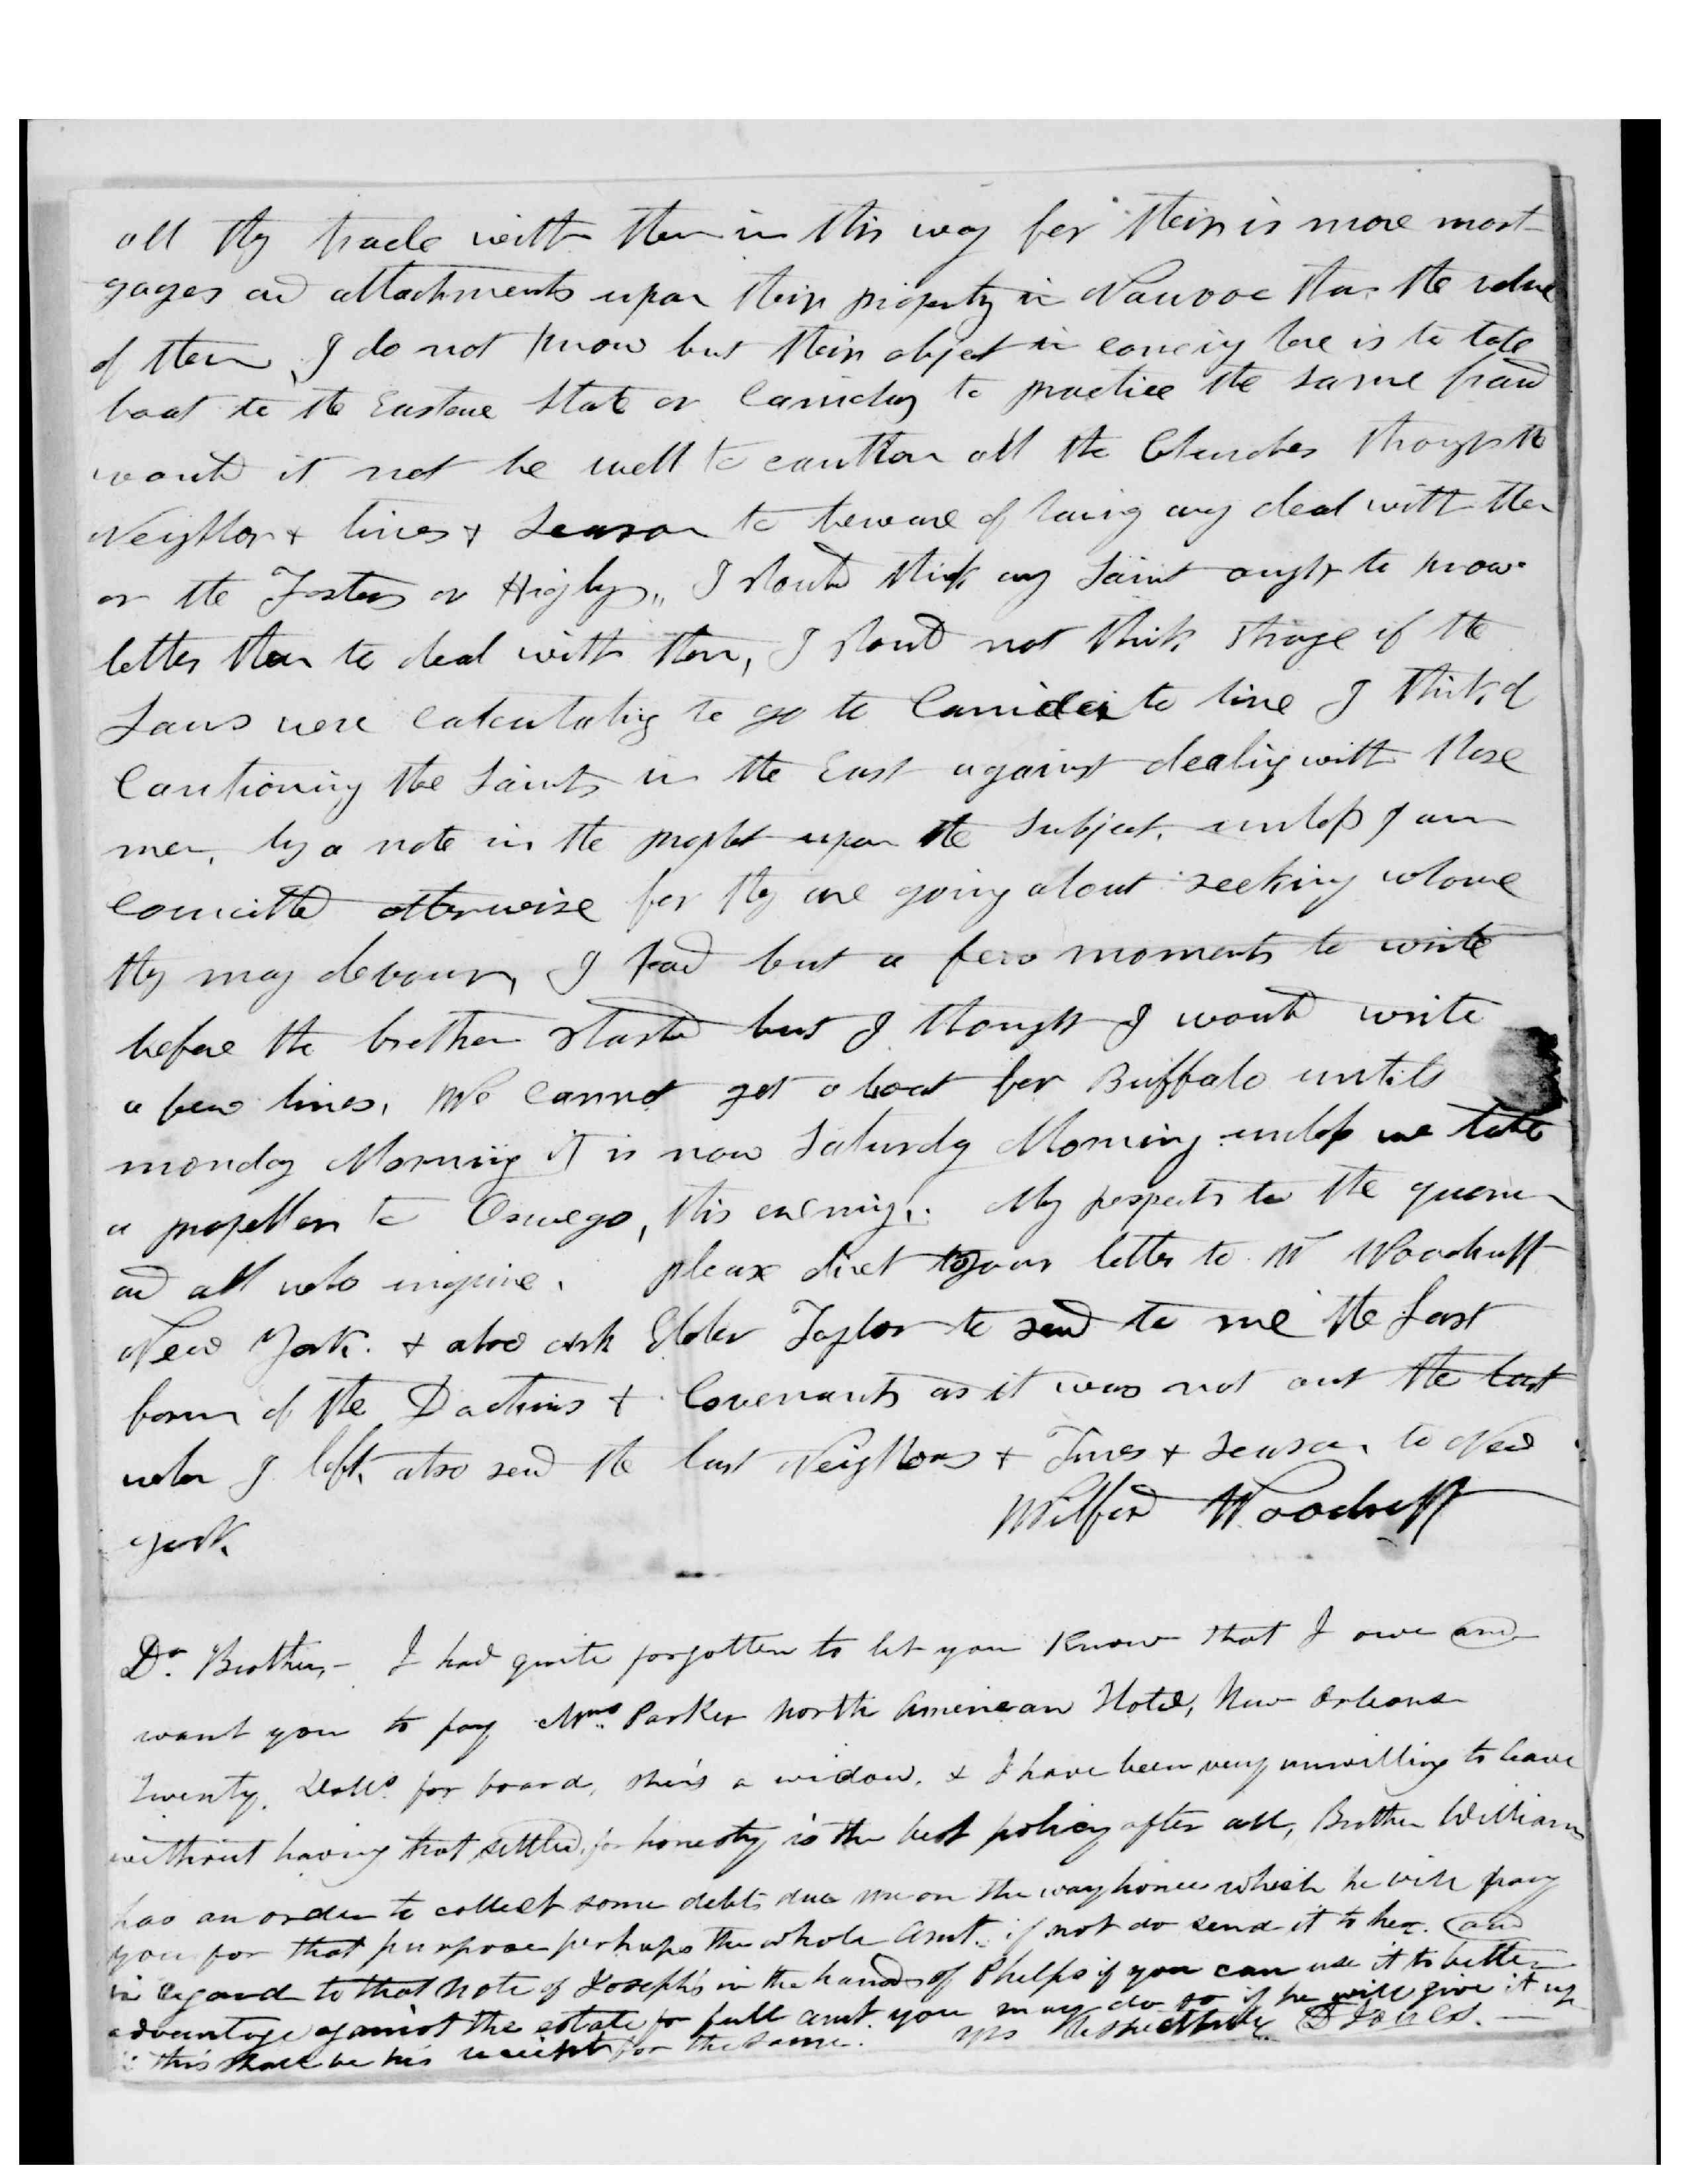 all they trade with them in this way for their is more mort-
gages and attachments upon their property in Nauvoo than the value
of them, I do not know but their object in coming here is to take
boat to the Eastern State or to practice the same fraud
would it not be well to caution all the Churches through the
Neighbor & times & Season to beware of having any deal with them
or the Fosters or Higbys,, I should think any Saint ought to know
better than to deal with them, I should not think strange if the
Laws were calculating to go to to live I think of
Cautioning the Saints in the East against dealing with those
men, by a note in the prophet upon the Subject. unless I am
councilled otherwise for they are going about seeking whome
they may devour, I had but a few moments to write
before the brethren started but I thought I would write
a few lines, We cannot get a boat for Buffalo untill
monday Morning it is now Saturdy Morning unless we take
a propellor to Oswego, this evening.. My respects to the quorum
and all who inquire. please direct your letter to W Woodruff
New York. & also ask Elder Taylor to send to me the last
form of the Doctrins & Covenants as it was not out the last
when I left, also send the last Neighbors & Times & Season, to New
York. Wilford Woodruff
Dr. Brother,- I had quite forgotten to let you know that I owe and
want you to pay Mrs Parker North American Hotel, New Orleans
Twenty, Dolls for board, she's a widow, & I have been very unwilling to leave
without having that settled, for honesty is the best policy after all, Brother Williams
has an order to collect some debts due me on the way home which he will pay
you for that purpose perhaps the whole Amt. if not do send it to her. and
in regard to that note of Joseph's in the hands of Phelps if you can use it to better
advantage against the estate for full amt. you may do so if he will give it up
& this shall be his receipt for the same. yrs Respectfully D Jones.-